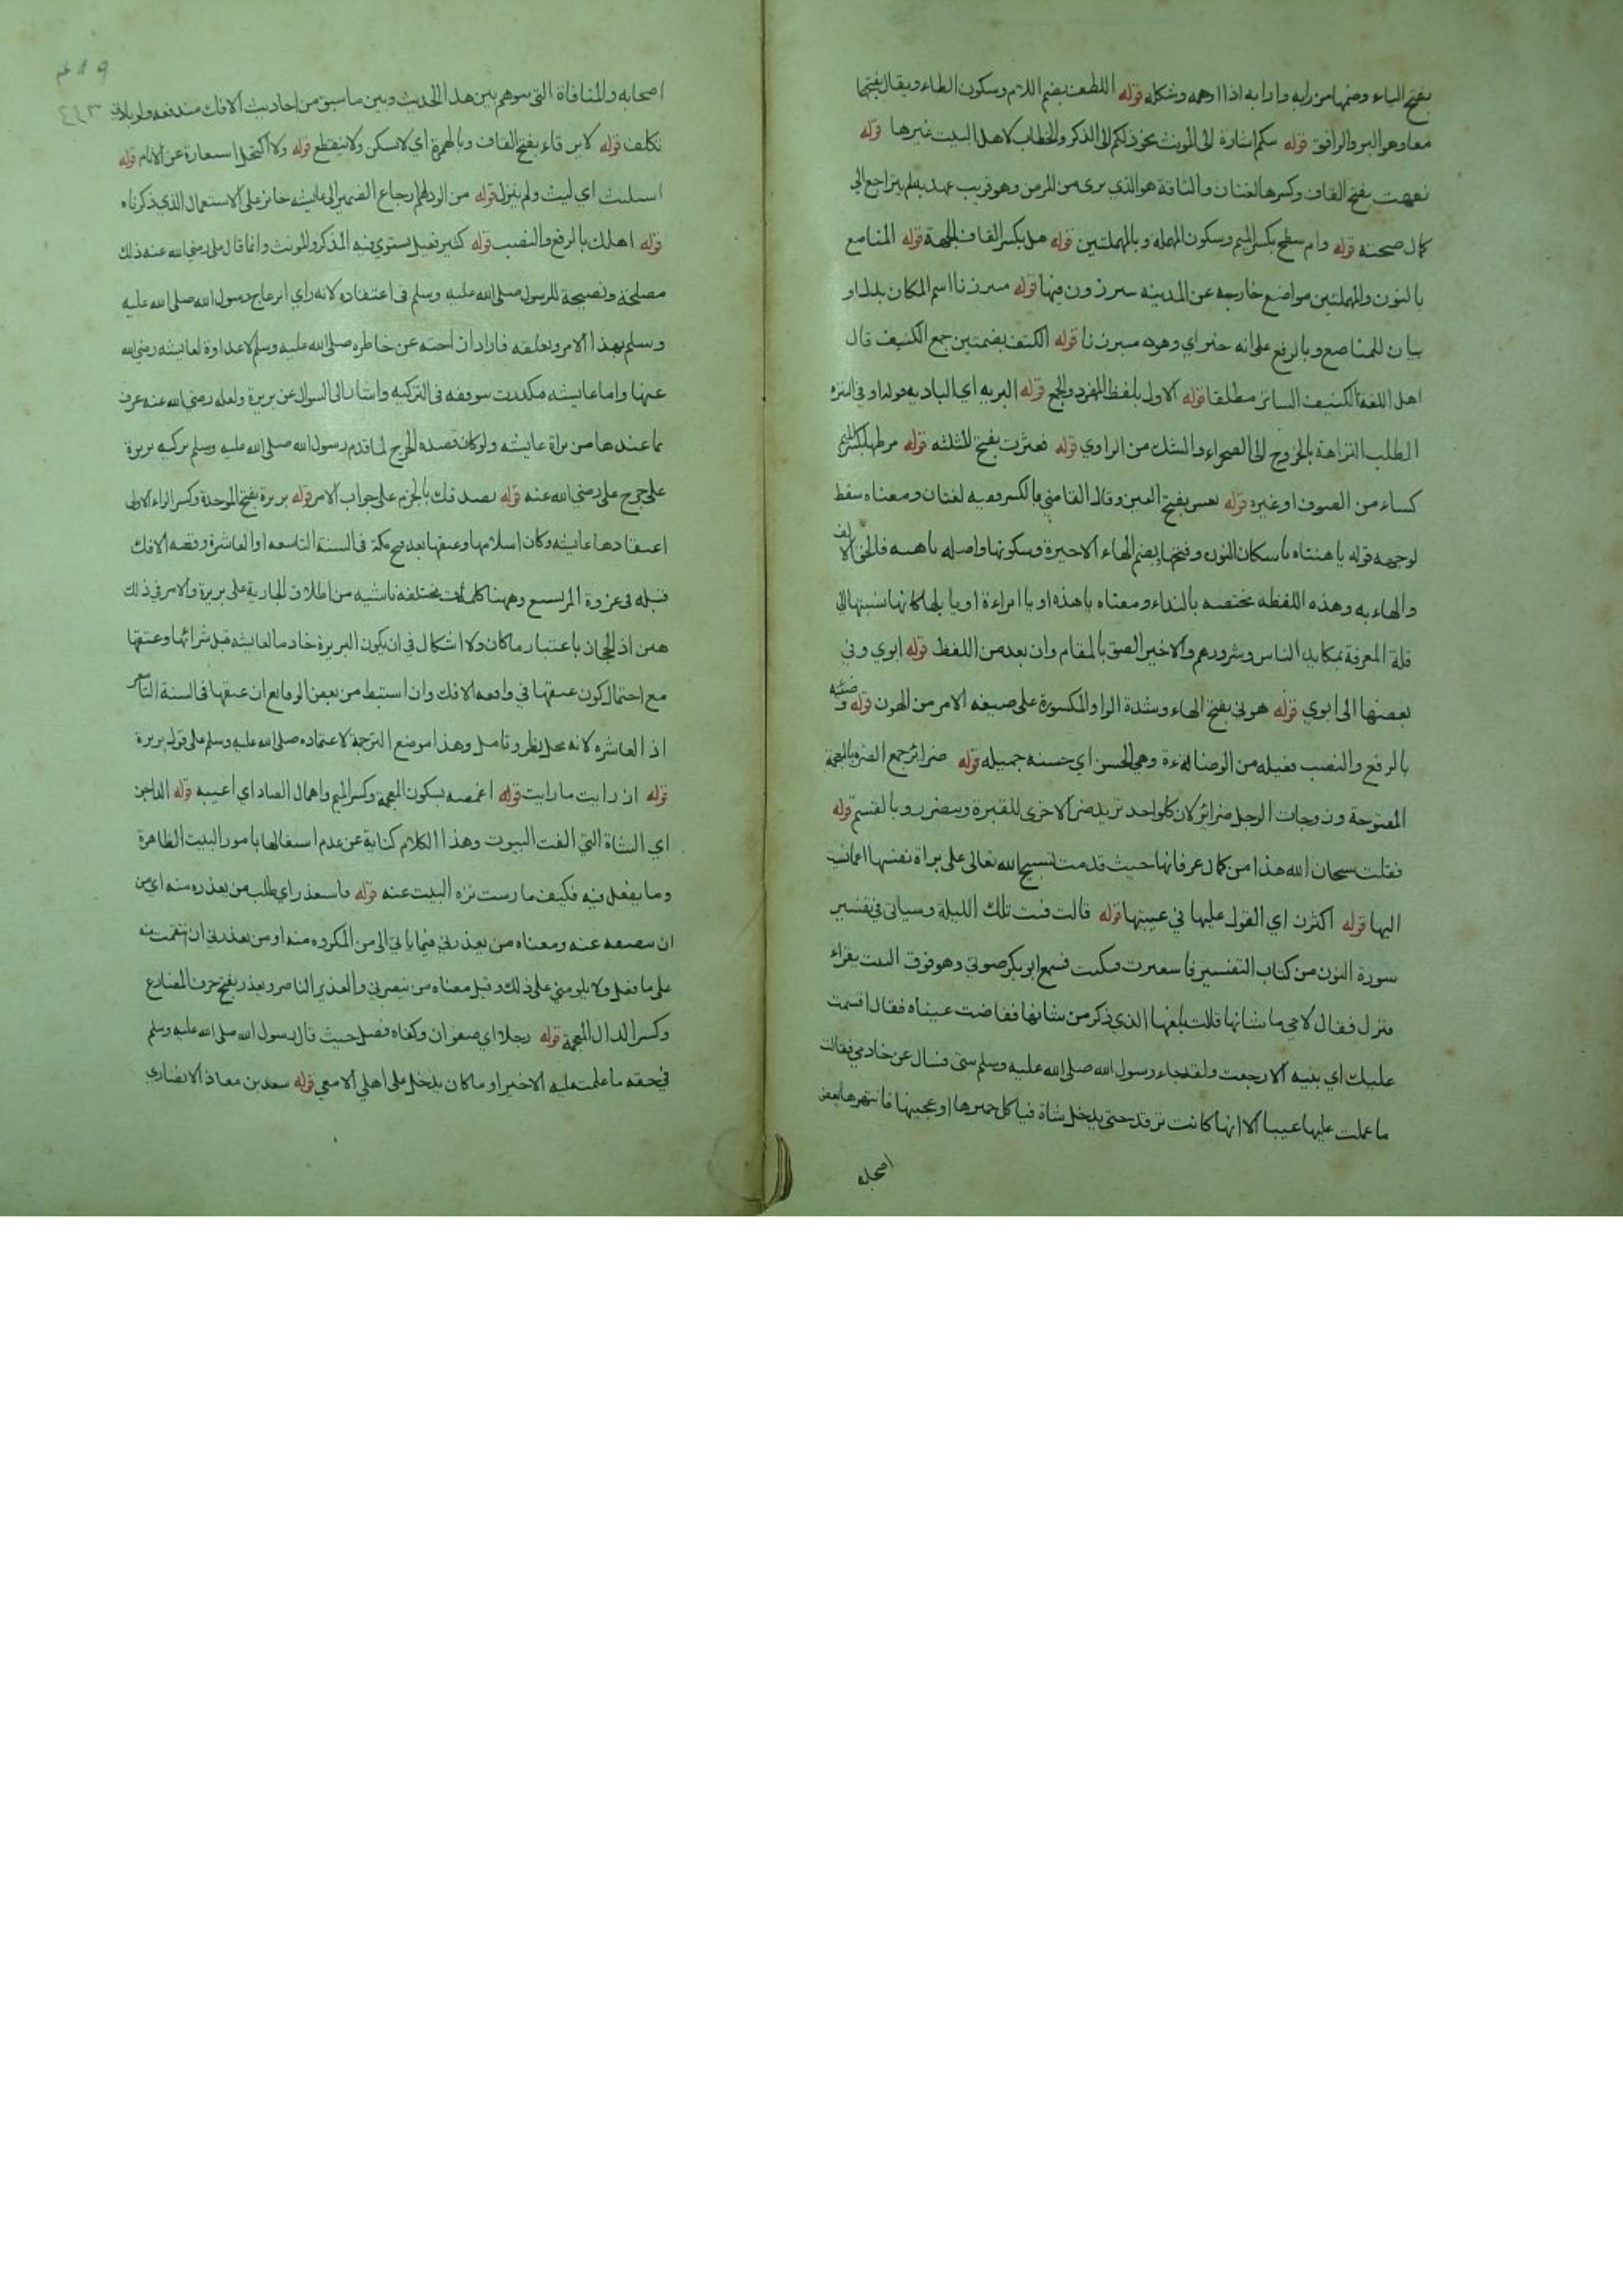 بفتح الياء وضمها من رابه وارابه اذا اوهمه وشككه قوله اللطف بضم اللام وسكون الطاء ويقال بفتحها
معا وهو البر والرافق قوله تيكم اشارة الى المونث نحو ذلكم الى المذكر والخطاب لاهل البيت غيرها قوله
نقهت بفتح القاف وكسرها لغتان والناقة هو الذي برى من المرض وهو قريب عهد به لم يتراجع الى
كمال صحته قوله وام مسطح بكسر الميم وسكون المهملة وبالمهملتين قوله قبل بكسر القاف الجهة قوله المناصع
بالنون والمهملتين مواضع خارجه عن المدينه يتبرزون فيها قوله متبرزنا اسم المكان بدل او
بيان للمناصع وبالرفع على انه خبر اي وهو متبرزنا قوله الكنف بضمتين جمع الكنيف قال
اهل اللغة الكنيف الساتر مطلقا قوله الاول بلفظ المفرد والجمع قوله البريه اي الباديه قوله او في التنزه
الطلب النزاهة بالخروج الى الصحراء والشك من الراوي قوله فعثرت بفتح المثلثه قوله مرطها بكسر الميم
كساء من الصوف او غيره قوله تعس بفتح العين وقال القاضي بالكسر وفيه لغتان ومعناه سقط
لوجهه قوله يا هنتاه باسكان النون وفتحها بضم الهاء الاخيرة وسكونها واصله يا هنه فالحق الالف
والهاء به وهذه اللفظه مختصه بالنداء ومعناه يا هذه او يا امراءة او يا بلها كانها نسبتها الى
قلة المعرفة بمكايد الناس وشرورهم والاخير الصق بالمقام وان بعد من اللفظ قوله ابوي وفي
بعضها الى ابوي قوله هوني بفتح الهاء وشدة الواو المكسورة على صيغه الامر من الهون قوله وضئه
بالرفع والنصب فعيله من الوضاءة وهي الحسن اي حسنه جميله قوله ضرائر جمع الضره بالمعجمة
المفتوحة وزوجات الرجل ضرائر لان كل واحد تريد ضر الاخرى للغيرة وستضرر وبالقسم قوله
فقلت سبحان الله هذا من كمال عرفانها حيث قدمت تسبيح الله تعالى على براة نفسها اعانت
اليها قوله اكثرن اي القول عليها في عيبتها قوله قالت فبت تلك الليلة وسياتي في تفسير
سورة النون من كتاب التفسير فاستعبرت فبكيت فسمع ابو بكر صوتي وهو فوق البيت يقراء
فنزل فقال لامي ما شانها قالت بلغها الذي ذكر من شانها ففاضت عيناه فقال اقسمت
عليك اي بنيه الا رجعت ولقد جاء رسول الله صلى الله عليه وسلم بيتي فسال عن خادمي فقالت
ما علمت عليها عيبا الا انها كانت ترقد حتى يدخل شاة فياكل خميرها او عجينها فانتهرها بعض
اصحابه
اصحابه والمنافاة التي يتوهم بين هذا الحديث وبين ما سبق من احاديث الافك مندفعه ولو بلا
تكلف قوله لا يرقاء بفتح القاف وبالهمزة اي لا يسكن ولا ينقطع قوله ولا اكتحل استعارة عن الانام قوله
استلبث اي لبث ولم ينزل قوله من الود لهم ارجاع الضمير الى عايشه جائز على الاستعمال الذي ذكرناه
قوله اهلك بالرفع والنصب قوله كثير فعيل يستوي فيه المذكر والمونث وانما قال علي رضي الله عنه ذلك
مصلحة ونصيحة للرسول صلى الله عليه وسلم في اعتقاده لانه راى انزعاج رسول الله صلى الله عليه
وسلم بهذا الامر وتعلقه فاراد ان احته عن خاطره صلى الله عليه وسلم لا عداوة لعايشه رضي الله
عنها واما عايشه فكدرت بتوقفه في التزكيه واشار الى السوال عن بريرة ولعله رضي الله عنه عرف
ما عندها من براة عايشه ولو كان قصده الجرح لما قدم رسول الله صلى الله عليه وسلم تزكيه بريرة
على جرح على رضي الله عنه قوله تصدقك بالجزم على جواب الامر قوله بريرة بفتح الموحدة وكسر الراء الاولى
اعتقادها عايشه وكان اسلامها وعتقها بعد فتح مكة في السنة التاسعه او العاشرة وقصه الافك
قبله في غزوة المريسيع وههنا كلمات مختلفه ناشيه من اطلاق الجارية على بريرة والامر في ذلك
هين اذ المجاز باعتبار ما كان ولا اشكال في ان يكون البريرة خادما لعايشه قبل شرائها وعتقها
مع احتمال كون عتقها في واقعه الافك وان استنبط من بعض الوقايع ان عتقها في السنة التاسعه
اذ العاشره لانه محل نظر وتامل وهذا موضع الترجمة لاعتماده صلى الله عليه وسلم على قول بريرة
قوله ان رايت ما رايت قوله اغمصه بسكون المعجمة وكسر الميم واهمال الصاد اي اعيبه قوله الداجن
اي الشاة التي الفت البيوت وهذا الكلام كناية عن عدم اشتغالها بامور البيت الظاهرة
وما يفعل فيه فكيف ما رست نزه البيت عنه قوله فاستعذر اي طلب من يعذره منه اي من
ان ينصفه عنه ومعناه من يعذرني فيما ياتي الى من المكروه منه او من يعذرني ان انتقمت منه
على ما فعل ولا يلومني على ذلك وقيل معناه من ينصرني والعذير الناصر ويعذر بفتح حرف المضارع
وكسر الذال المعجمة قوله رجلا اي صفوان وكفاه فضل حيث قال رسول الله صلى الله عليه وسلم
في حقه ما علمت عليه الا خيرا وما كان يدخل على اهلي الا معي قوله سعد بن معاذ الانصاري